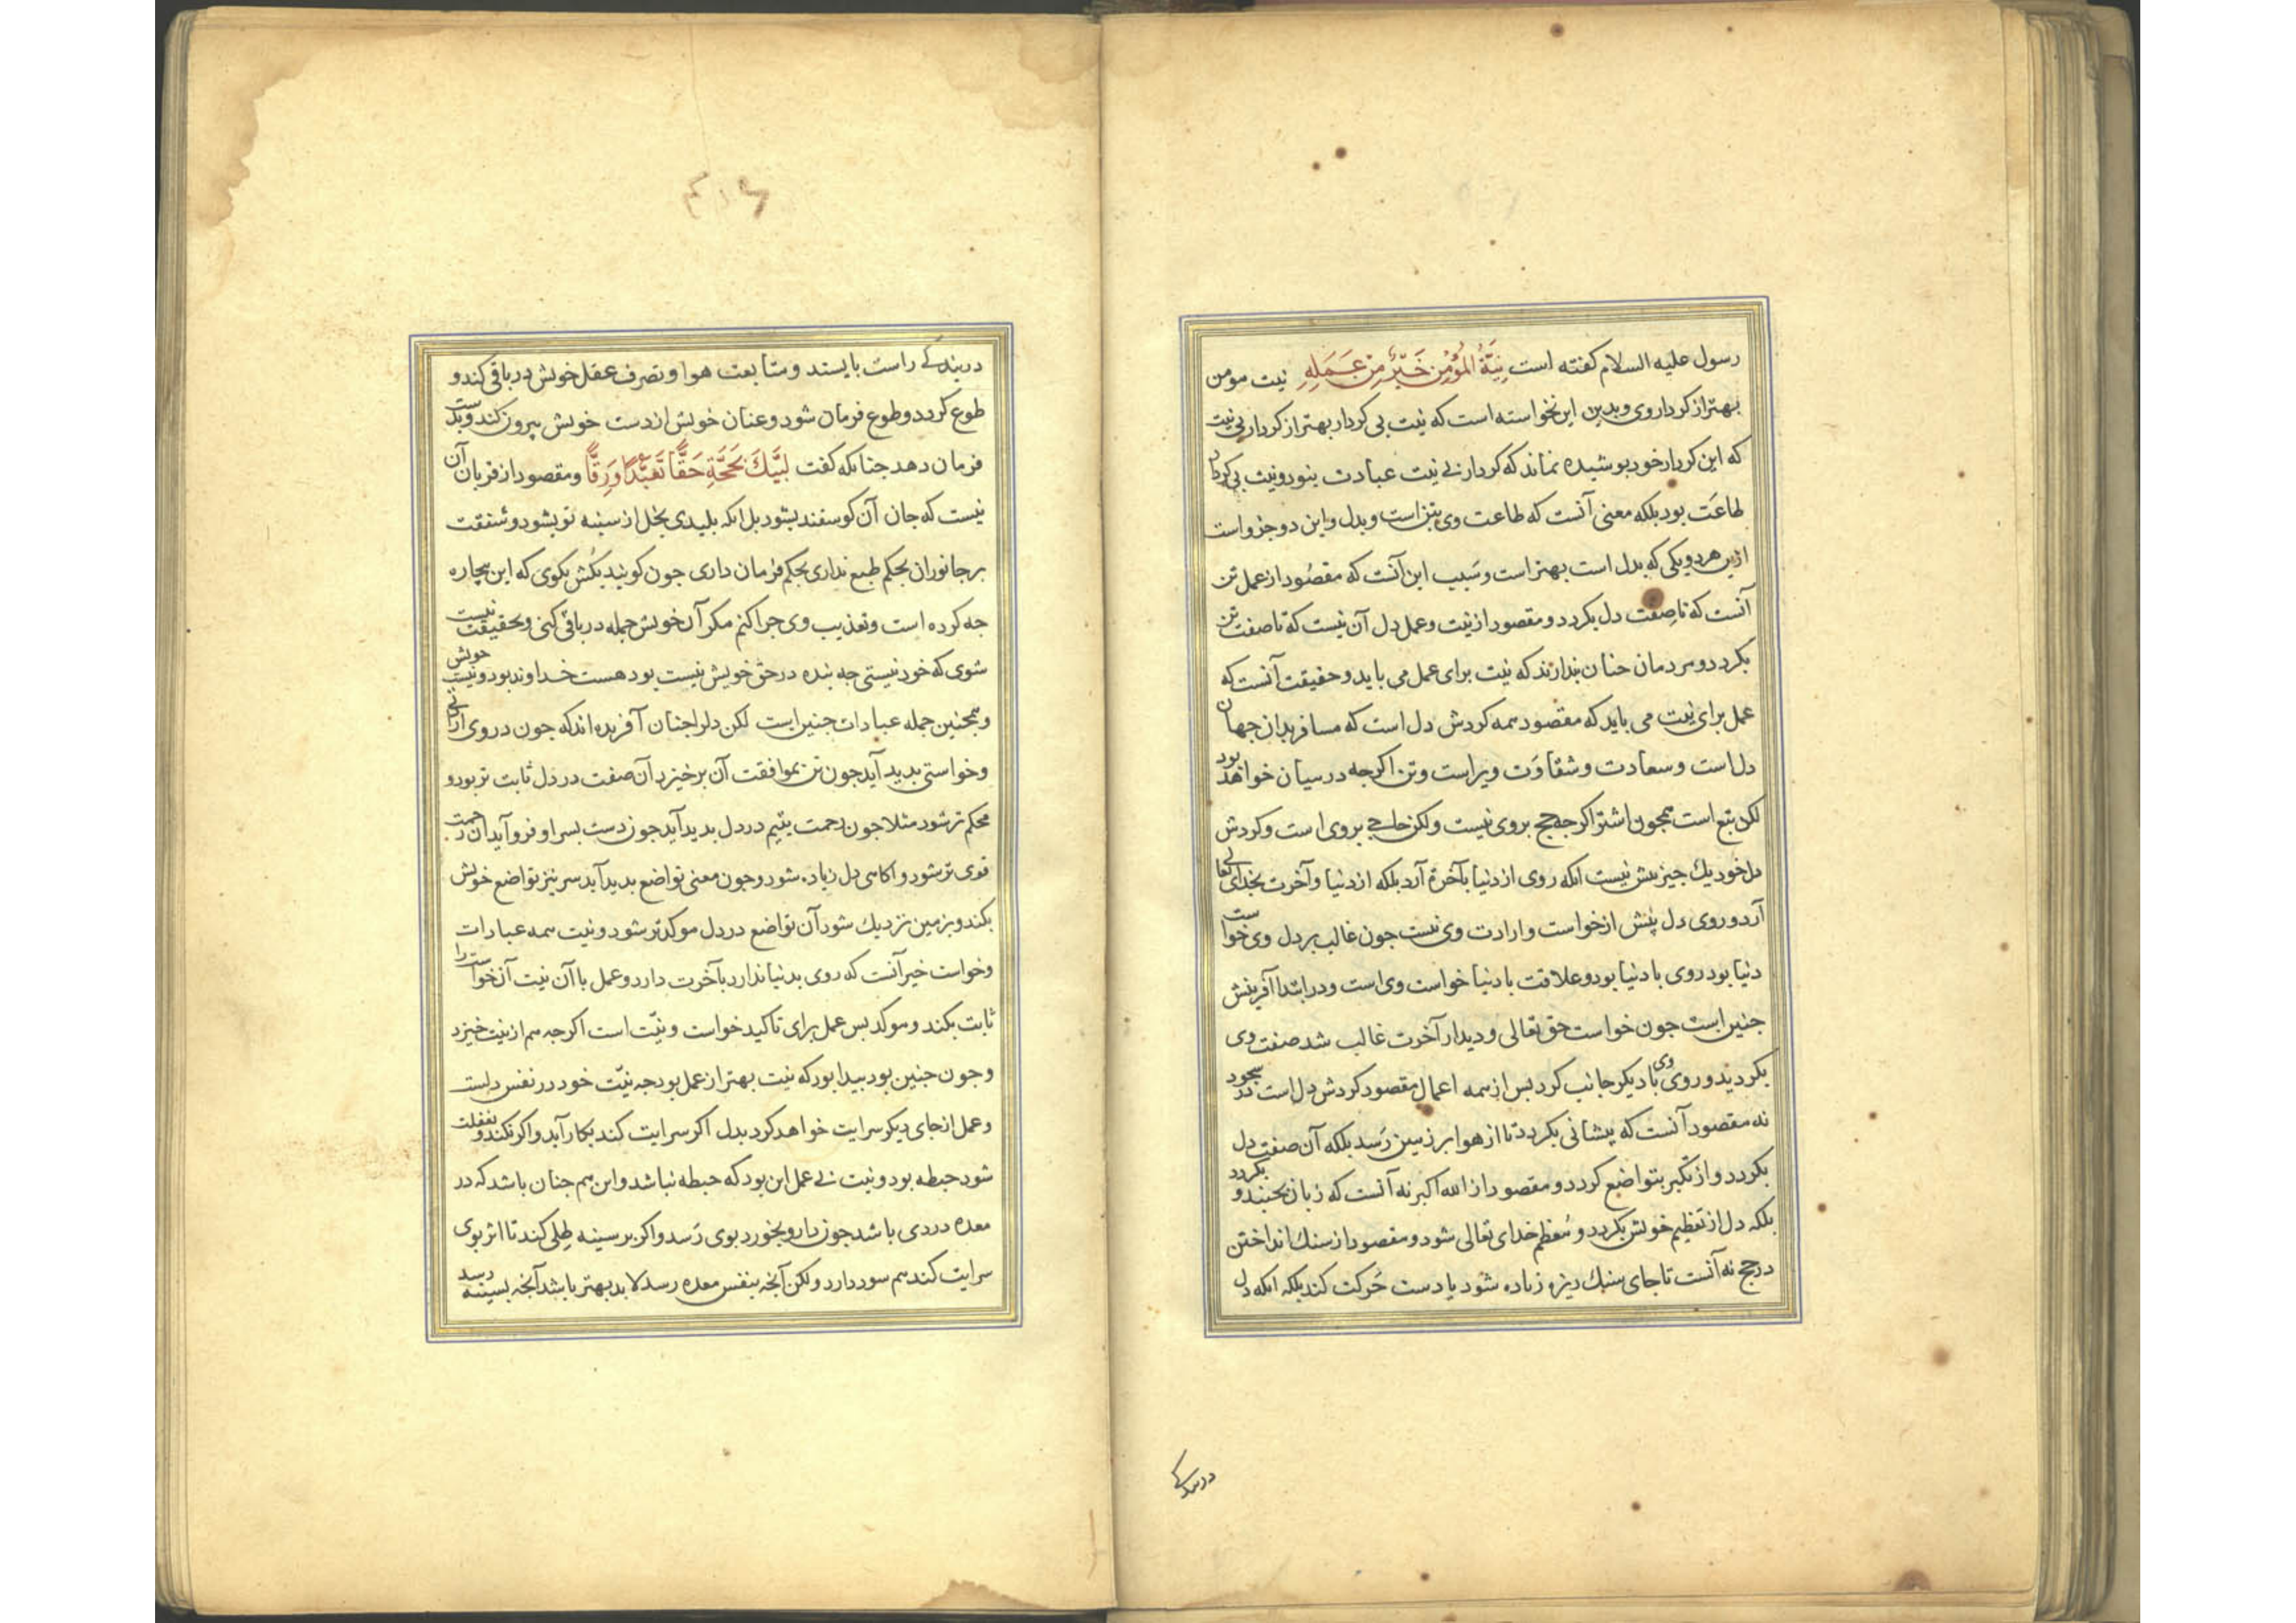 رسول علیه السلام کفته است نِیَّةُ المُؤْمِنِ خَیْرٌ مِنْ عَمَلِهِ نیت مومن
بهتر از کردار وی و بدین این نخواسته است که نیت بی کردار بهتر از کردار بی نیت
که این کردار خود بوشیده نماند که کردار بی نیت عبادت بنود و نیت بی کردار
طاعَت بود بلکه معنی آنست که طاعت وی بتن است و بدل و این دو جزو است
ازین هر دو یکی که بدل است بهتر است و سَبب این آنست که مقصُود از عمل تن
آنست که تا صِفت دل بکردد و مقصود از نیت و عمل دل آن نیست که تا صفت تن
بکردد و مردمان جنان بندارند که نیت برای عمل می باید و حقیقت آنست که
عمل برای نیت می باید که مقصود همه کردش دل است که مسافر بدان جهان
دل است و سعادت و شقاوَت ویراست و تن اکرجه در میان خواهد بود
لکن تبع است همجون اشتر اکرجه حج بروی نیست ولکن حاجی بروی است و کردش
دل خود یك جیز بیش نیست انکه روی از دنیا بآخرة آرد بلکه از دنیا و آخرت بخدای تعالی
آرد و روی دل بیش از خواست و ارادت وی نیست جون غالب بر دل وی خواست
دنیا بود روی با دنیا بود و علاقت با دنیا خواست وی است و در ابتدا آفرینش
جنین است جون خواست حق تعالی و دیدار آخرت غالب شد صفت وی
بکردید و روی وی با دیکر جانب کرد بس از همه اعمال مقصود کردش دل است در سجود
نه مقصود آنست که بیشانی بکردد تا از هوا بر زمین رَسد بلکه آن صفت دل
بکردد و از تکبر بتواضع کردد و مقصود از الله اکبر نه آنست که زبان بجنبد و بکردد
بلکه دل از تعظیم خویش بکردد و مُعظم خدای تعالی شود و مقصود از سنك انداختن
در حج نه آنست تا جای سنك ریزه زیاده شود یا دست حَرکت کند بلکه انکه دل
در بندکی
در بندکی راست بایستد و متابعت هوا و تصرف عقل خویش در باقی کند و
طوع کردد و طوع فرمان شود و عنان خویش از دست خویش بیرون کند و بدست
فرمان دهد جنانکه کفت لَبَّیْكَ بِحَجَّةٍ حَقًّا تَعَبُّدًا وَرِقًّا و مقصود از قربان آن
نیست که جان آن کوسفند بشود بل انکه بلیدی بخل از سینه تو بشود و شفقت
بر جانوران بحکم طبع نداری بحکم فرمان داری جون کویند بکُش نکوی که این بیچاره
جه کرده است و تعذیب وی جرا کنم مکر آن خویش جمله در باقی کنی و بحقیقت نیست
شوی که خود نیستی جه بنده در حق خویش نیست بود هست خداوند بود و نیست خویش
و همجنین جمله عبادات جنین است لکن دل را جنان آفریده اند که جون در وی ارادتی
و خواستی بدید آید جون تن بموافقت آن برخیزد آن صفت در دل ثابت تر بود و
محکم تر شود مثلا جون رحمت یتیم در دل بدید آید جون دست بسر او فرو آید آن رحمت
قوی تر شود و اکاهی دل زیاده شود و جون معنی تواضع بدید آید سر نیز تواضع خویش
بکند و بزمین نزدیك شود آن تواضع در دل موکدتر شود و نیت همه عبادات
و خواست خیر آنست که روی بدنیا ندارد بآخرت دارد و عمل با آن نیت آن خواست را
ثابت بکند و موکد بس عمل برای تاکید خواست و نیّت است اکرجه هم از نیت خیزد
و جون جنین بود بیدا بود که نیت بهتر از عمل بود جه نیّت خود در نفس دلست
و عمل از جای دیکر سرایت خواهد کرد بدل اکر سرایت کند بکار آید و اکر نکند و بغفلت
شود حبطه بود و نیت بی عمل این بود که حبطه نباشد و این هم جنان باشد که در
معده دردی باشد جون دارو بخورد بوی رَسد و اکر بر سینه طلی کند تا اثر بوی
سرایت کند هم سود دارد ولکن آنجه بنفس معده رسد لابد بهتر باشد آنجه بسینه رسد